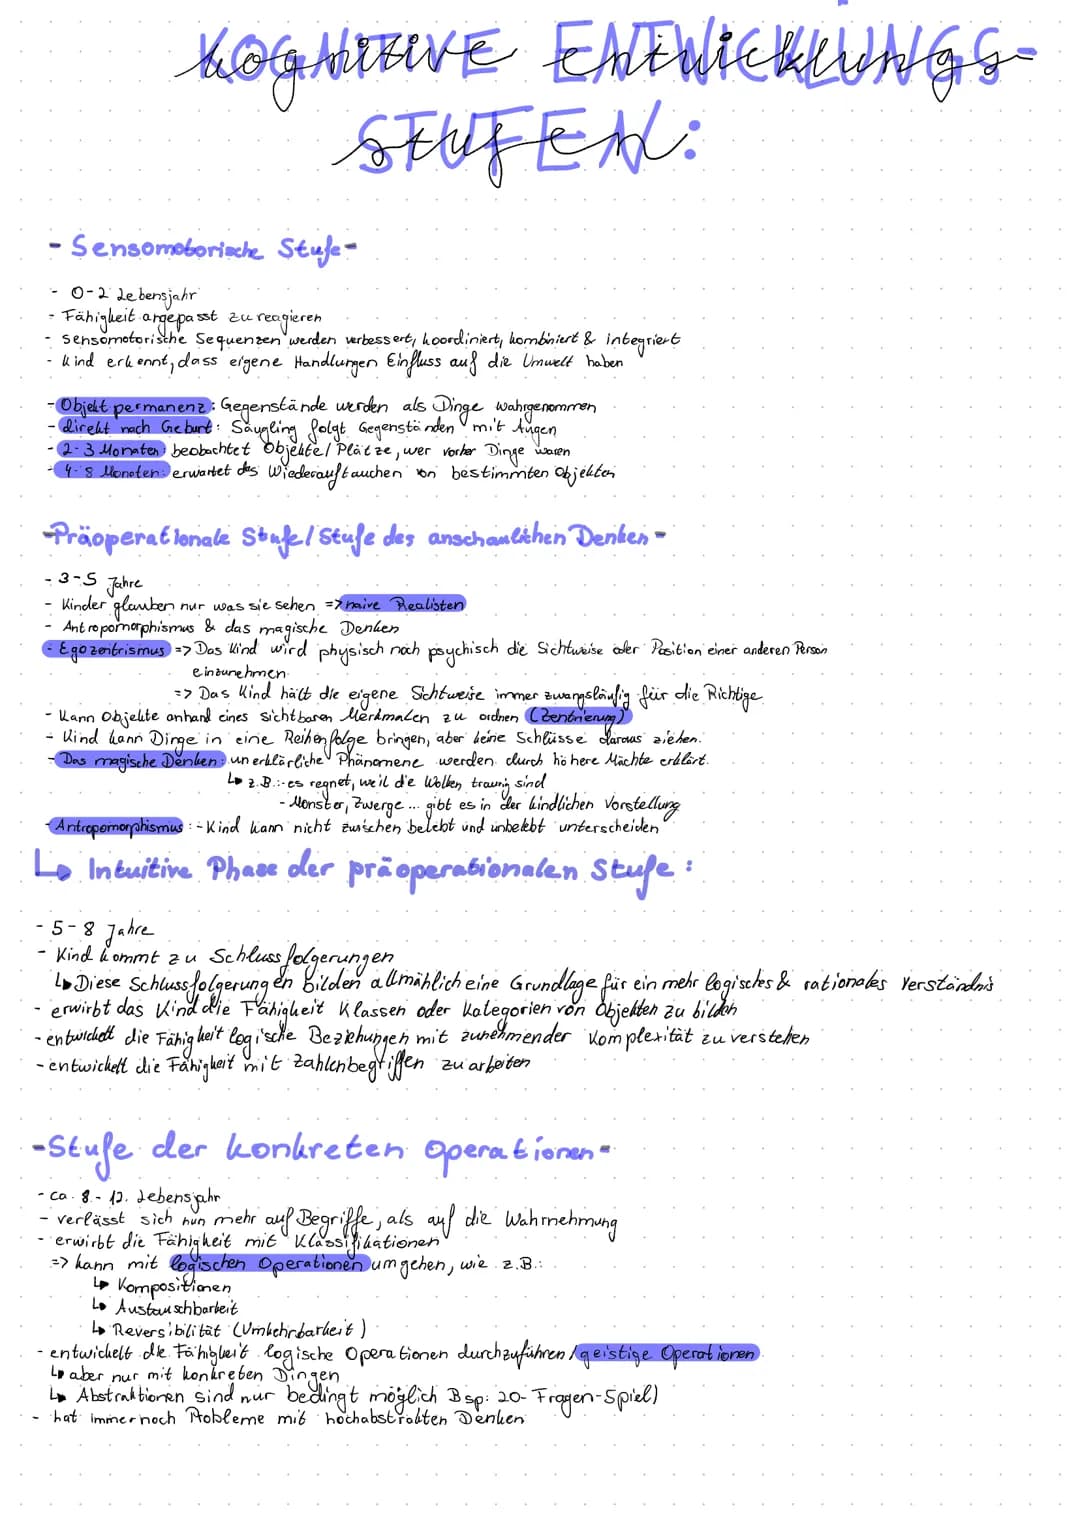 KOGNITIVE ENTWICKLUNGS-
STUFEN:
- Sensomotorische Stufe -
- 0-2 Lebensjahr
- Fähigkeit angepasst zu reagieren
- sensomotorische Sequenzen werden verbessert, koordiniert, kombiniert & integriert
- Kind erkennt, dass eigene Handlungen Einfluss auf die Umwelt haben
- Objektpermanenz: Gegenstände werden als Dinge wahrgenommen
- direkt nach Geburt: Säugling folgt Gegenständen mit Augen
- 2-3 Monaten: beobachtet Objekte/Plätze, wer vorher Dinge waren
- 4-8 Monaten: erwartet das Wiederauftauchen von bestimmten Objekten
- Präoperationale Stufe/Stufe des anschaulichen Denken -
- 3-5 Jahre
- Kinder glauben nur was sie sehen => naive Realisten
- Antropomorphismus & das magische Denken
- Egozentrismus => Das Kind wird physisch noch psychisch die Sichtweise oder Position einer anderen Person
einzunehmen
=> Das Kind hält die eigene Sichtweise immer zwangsläufig für die Richtige
- Kann Objekte anhand eines sichtbaren Merkmalen zu ordnen (Zentrierung)
- Kind kann Dinge in eine Reihenfolge bringen, aber keine Schlüsse daraus ziehen.
- Das magische Denken: unerklärliche Phänomene werden durch höhere Mächte erklärt.
↳ z.B.: - es regnet, weil die Wolken traurig sind
- Monster, Zwerge ... gibt es in der kindlichen Vorstellung
- Antropomorphismus: - Kind kann nicht zwischen belebt und unbelebt unterscheiden
↳ Intuitive Phase der präoperationalen Stufe:
- 5-8 Jahre
- Kind kommt zu Schlussfolgerungen
↳ Diese Schlussfolgerungen bilden allmählich eine Grundlage für ein mehr logisches & rationales Verständnis
- erwirbt das Kind die Fähigkeit Klassen oder Kategorien von Objekten zu bilden
- entwickelt die Fähigkeit logische Beziehungen mit zunehmender Komplexität zu verstehen
- entwickelt die Fähigkeit mit Zahlenbegriffen zu arbeiten
- Stufe der konkreten Operationen -
- ca. 8.- 12. Lebensjahr
- verlässt sich nun mehr auf Begriffe, als auf die Wahrnehmung
- erwirbt die Fähigkeit mit Klassifikationen
=> kann mit logischen Operationen umgehen, wie z.B.:
↳ Kompositionen
↳ Austauschbarkeit
↳ Reversibilität (Umkehrbarkeit)
- entwickelt die Fähigkeit logische Operationen durchzuführen / geistige Operationen
↳ aber nur mit konkreten Dingen
↳ Abstraktionen sind nur bedingt möglich Bsp: 20-Fragen-Spiel)
- hat immernoch Probleme mit hochabstrakten Denken